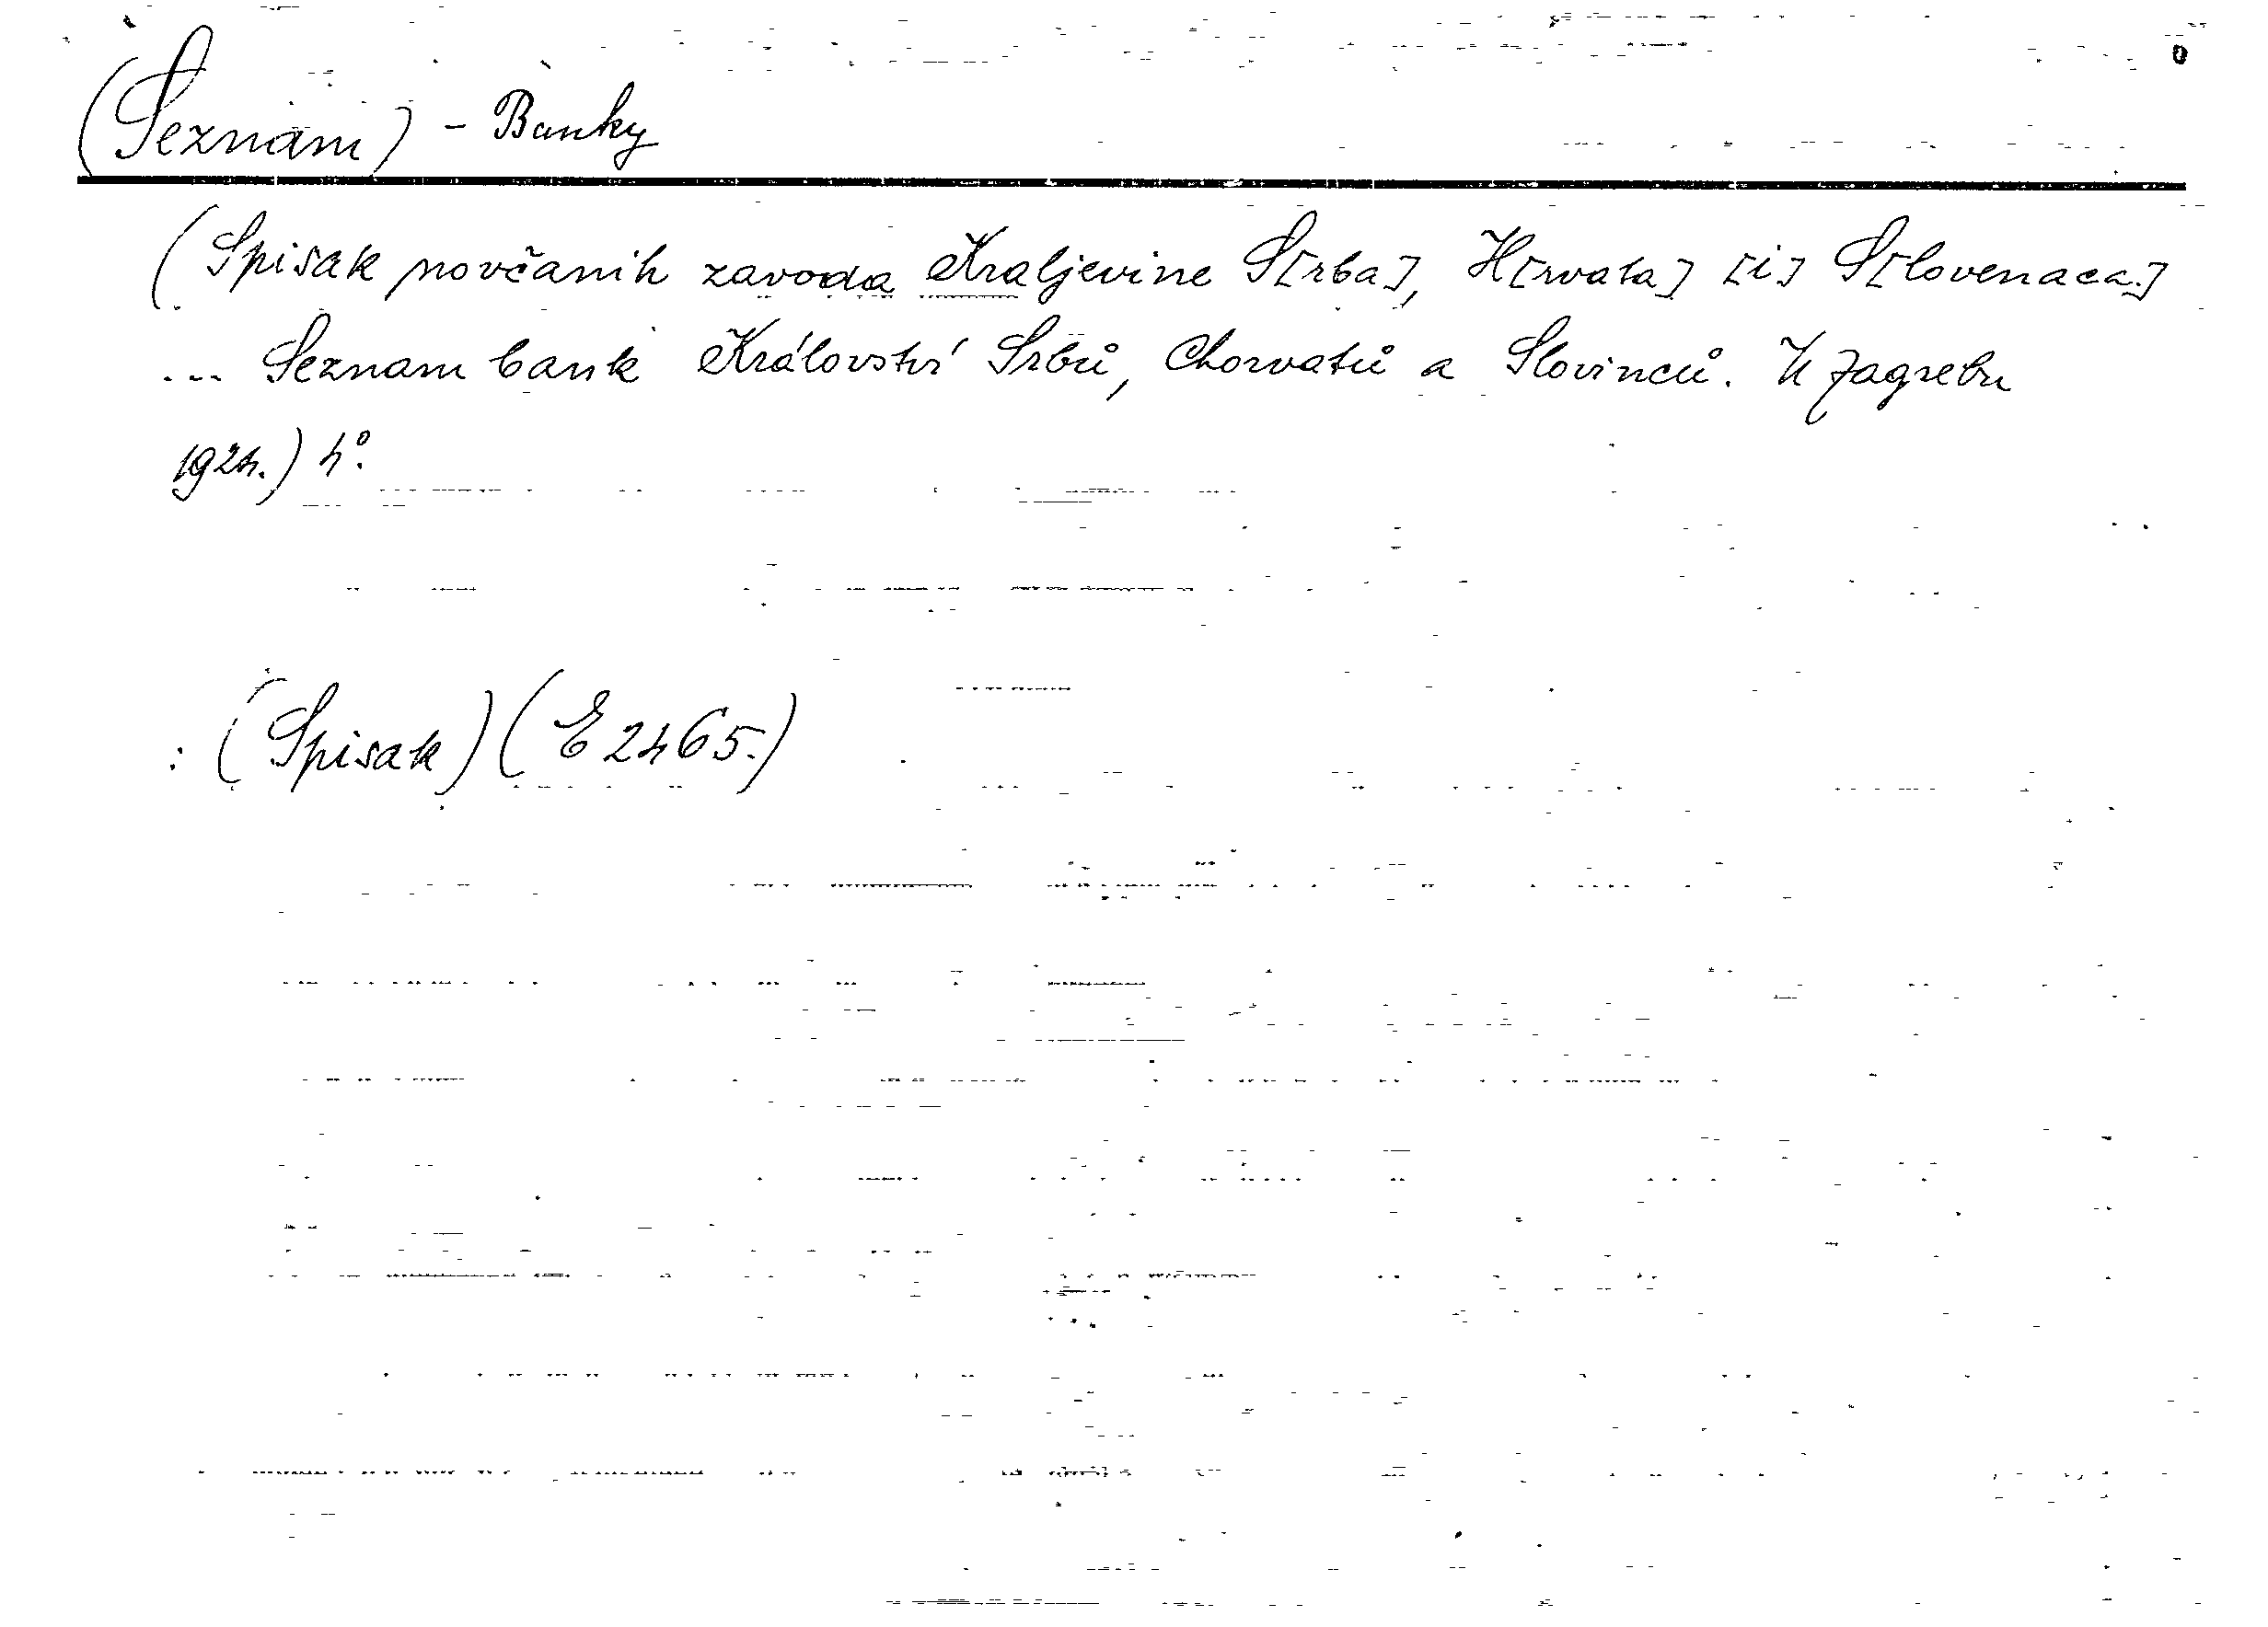 (Seznam) - Banky
(Spisak novčanih zavoda Kraljevine S[rba], H[rvata] [i] S[lovenaca.]
... Seznam bank Království Srbů, Chorvatů a Slovinců. U Zagrebu
1924.) 4°.
: (Spisak) (E 2465.)